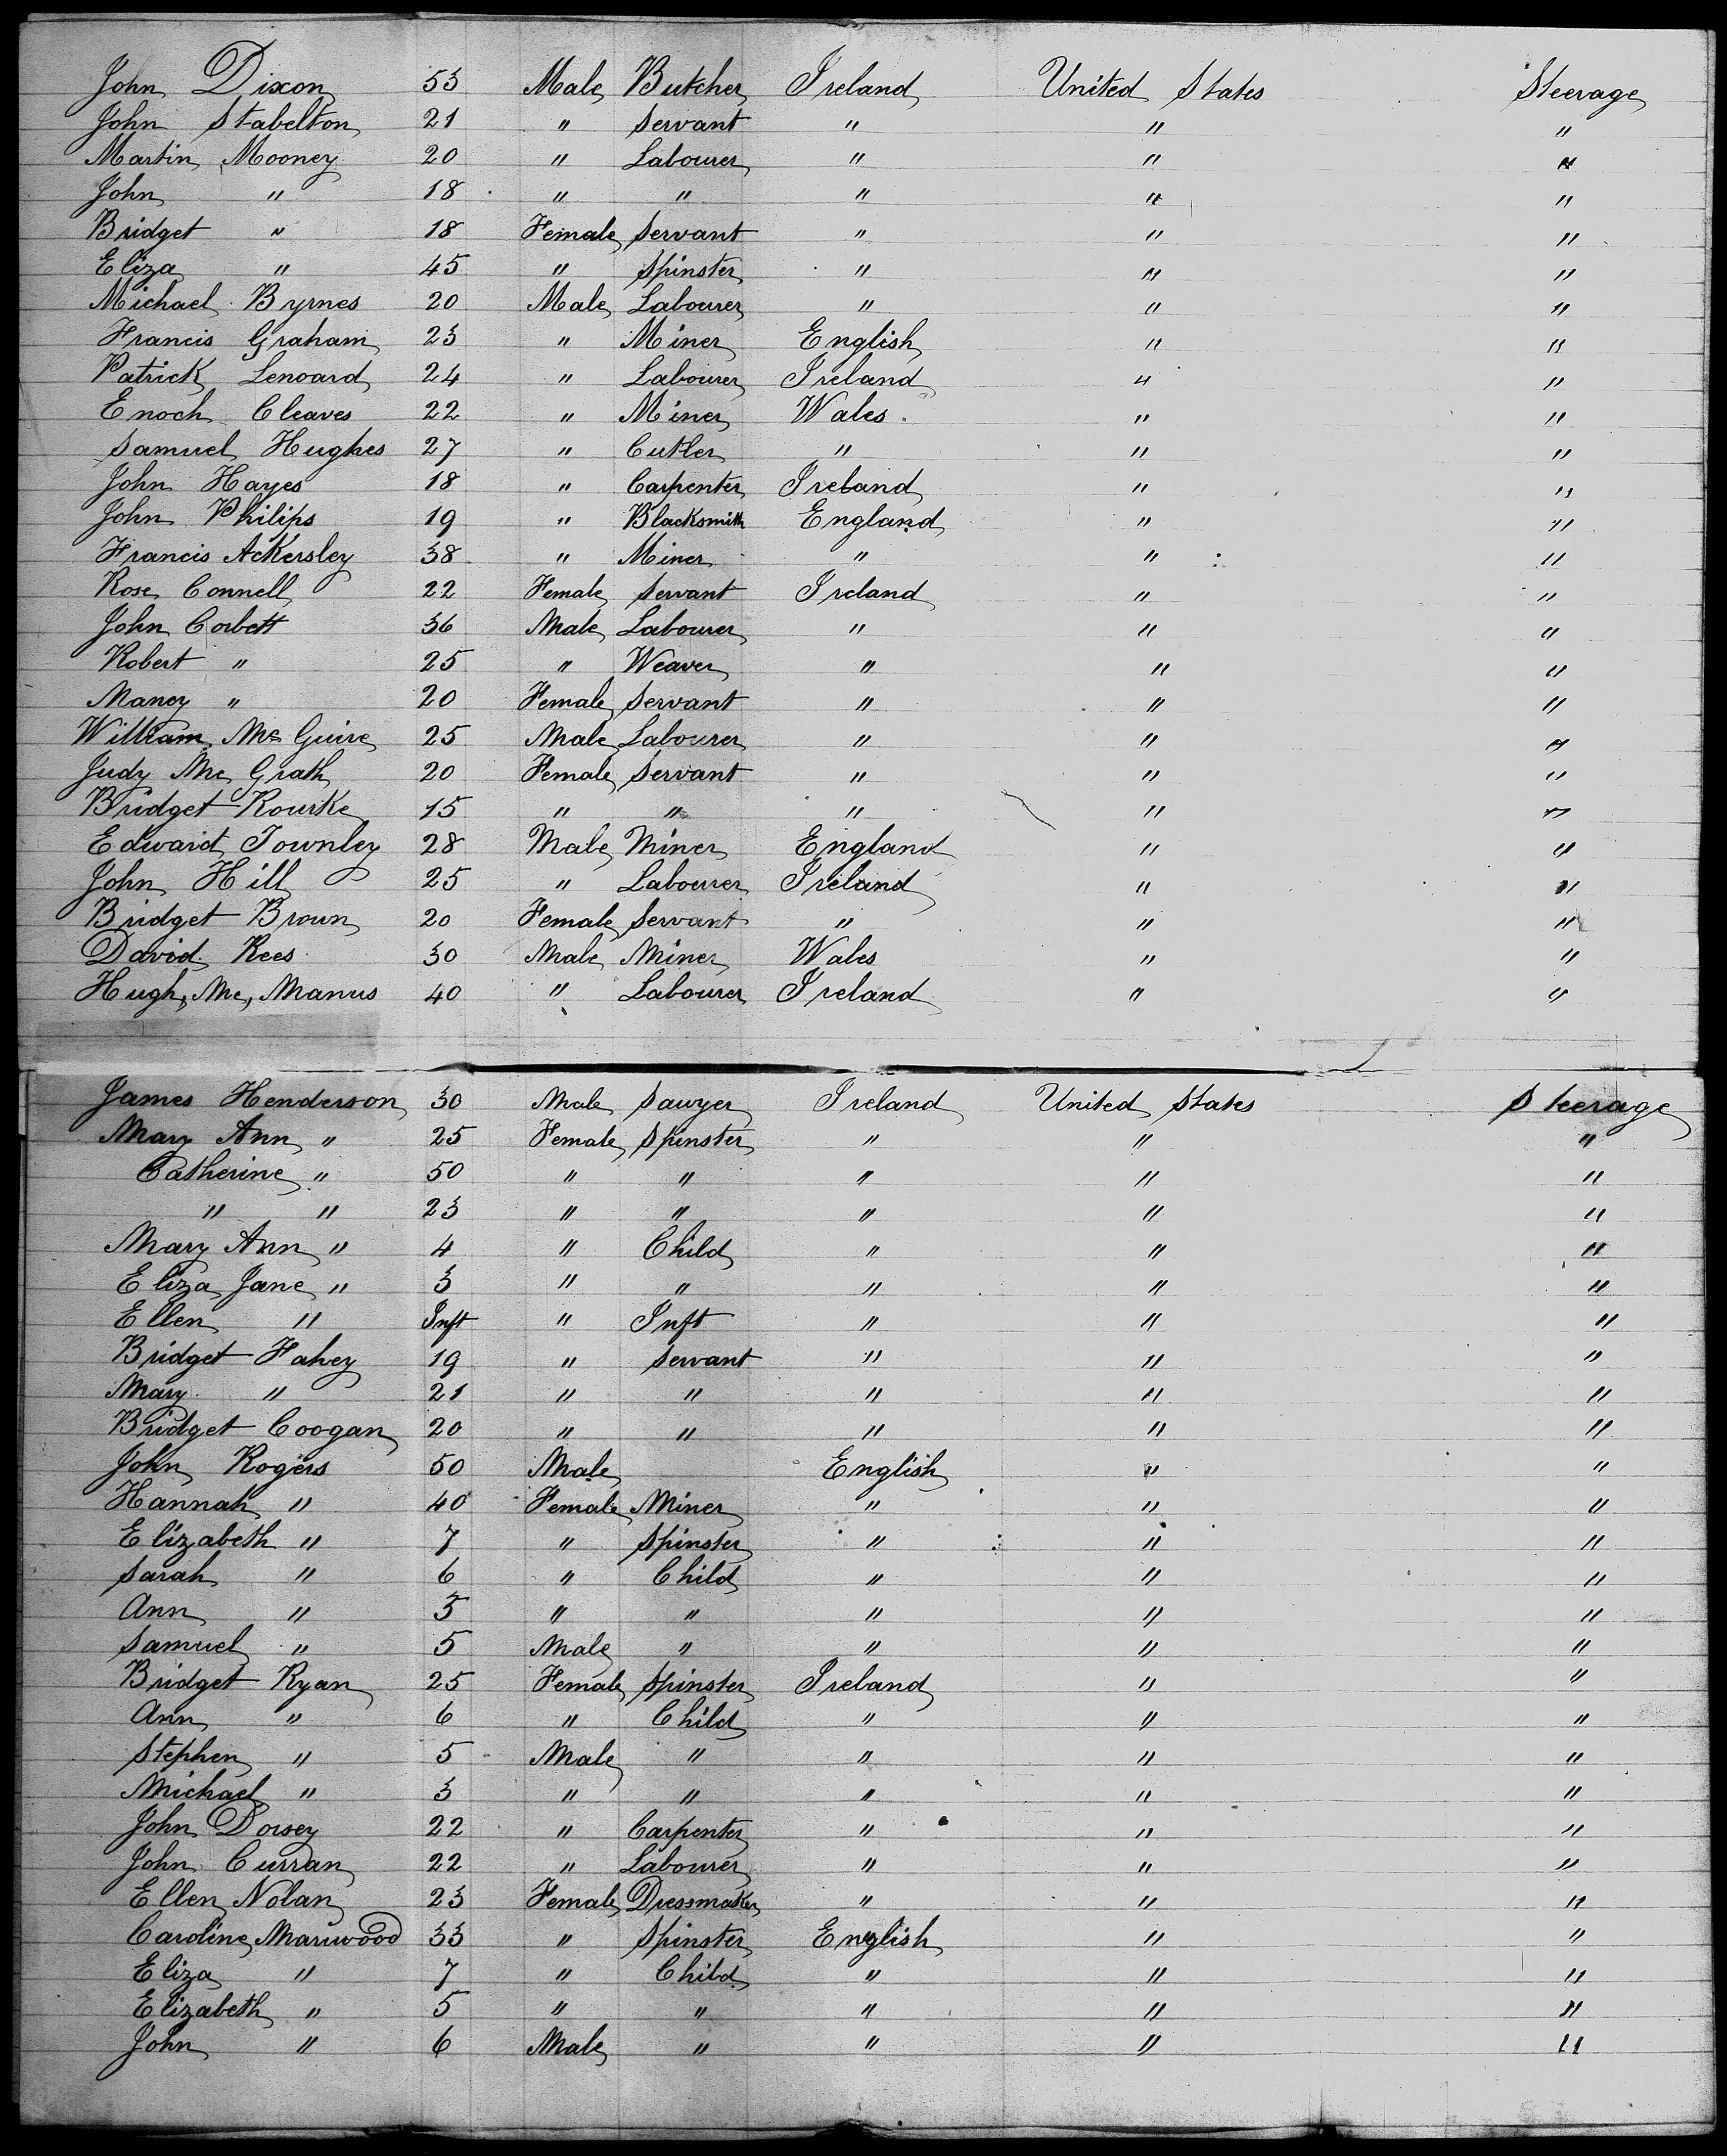 John Dixon 53 Male Butcher Ireland United States Steerage
John Stabelton 21 " Servant " " "
Martin Mooney 20 " Labourer " " "
John " 18 " " " " "
Bridget " 18 Female Servant " " "
Eliza " 45 " Spinster " " "
Michael Byrnes 20 Male Labourer " " "
Francis Graham 23 " Miner English " "
Patrick Lenoard 24 " Labourer Ireland " "
Enoch Cleaves 22 " Miner Wales " "
Samuel Hughes 27 " Cutler " " "
John Hayes 18 " Carpenter Ireland " "
John Philips 19 " Blacksmith England " "
Francis Ackersley 38 " Miner " " "
Rose Connell 22 Female Servant Ireland " "
John Corbett 36 Male Labourer " " "
Robert " 25 " Weaver " " "
Nancy " 20 Female Servant " " "
William Mc Guire 25 Male Labourer " " "
Judy Mc Grath 20 Female Servant " " "
Bridget Rourke 15 " " " " "
Edward Townley 28 Male Miner England " "
John Hill 25 " Labourer Ireland " "
Bridget Broun 20 Female Servant " " "
David Rees 30 Male Miner Wales " "
Hugh, Mc, Manus 40 " Labourer Ireland " "
James Henderson 30 Male Sawyer Ireland United States Steerage
Mary Ann " 25 Female Spinster " " "
Catherine " 50 " " " " "
" " 23 " " " " "
Mary Ann " 4 " Child " " "
Eliza Jane " 3 " " " " "
Ellen " Inft " Inft " " "
Bridget Fahey 19 " Servant " " "
Mary " 21 " " " " "
Bridget Coogan 20 " " " " "
John Rogers 50 Male English " "
Hannah " 40 Female Miner " " "
Elizabeth " 7 " Spinster " " "
Sarah " 6 " Child " " "
Ann " 3 " " " " "
Samuel " 5 Male " " " "
Bridget Ryan 25 Female Spinster Ireland " "
Ann " 6 " Child " " "
Stephen " 5 Male " " " "
Michael " 3 " " " " "
John Dorsey 22 " Carpenter " " "
John Curran 22 " Labourer " " "
Ellen Nolan 23 Female Dressmaker " " "
Caroline Mariwood 33 " Spinster English " "
Eliza " 7 " Child " " "
Elizabeth " 5 " " " " "
John " 6 Male " " " "